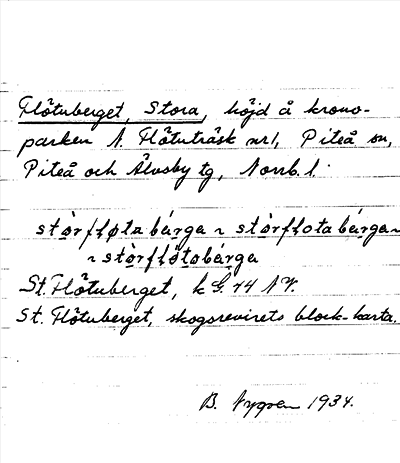 Flötuberget, Stora, höjd å krono-
parken N. Flötuträsk nr 1, Piteå sn,
Piteå och Älvsby tg, Norrb. l.
stòrfḷøtabærga ~ stòrfḷotabærga ~
~ stòrfḷötobærga
St. Flötuberget, k G. 74 N V.
St. Flötuberget, skogsrevirets block-karta.
B. Nygren 1934.